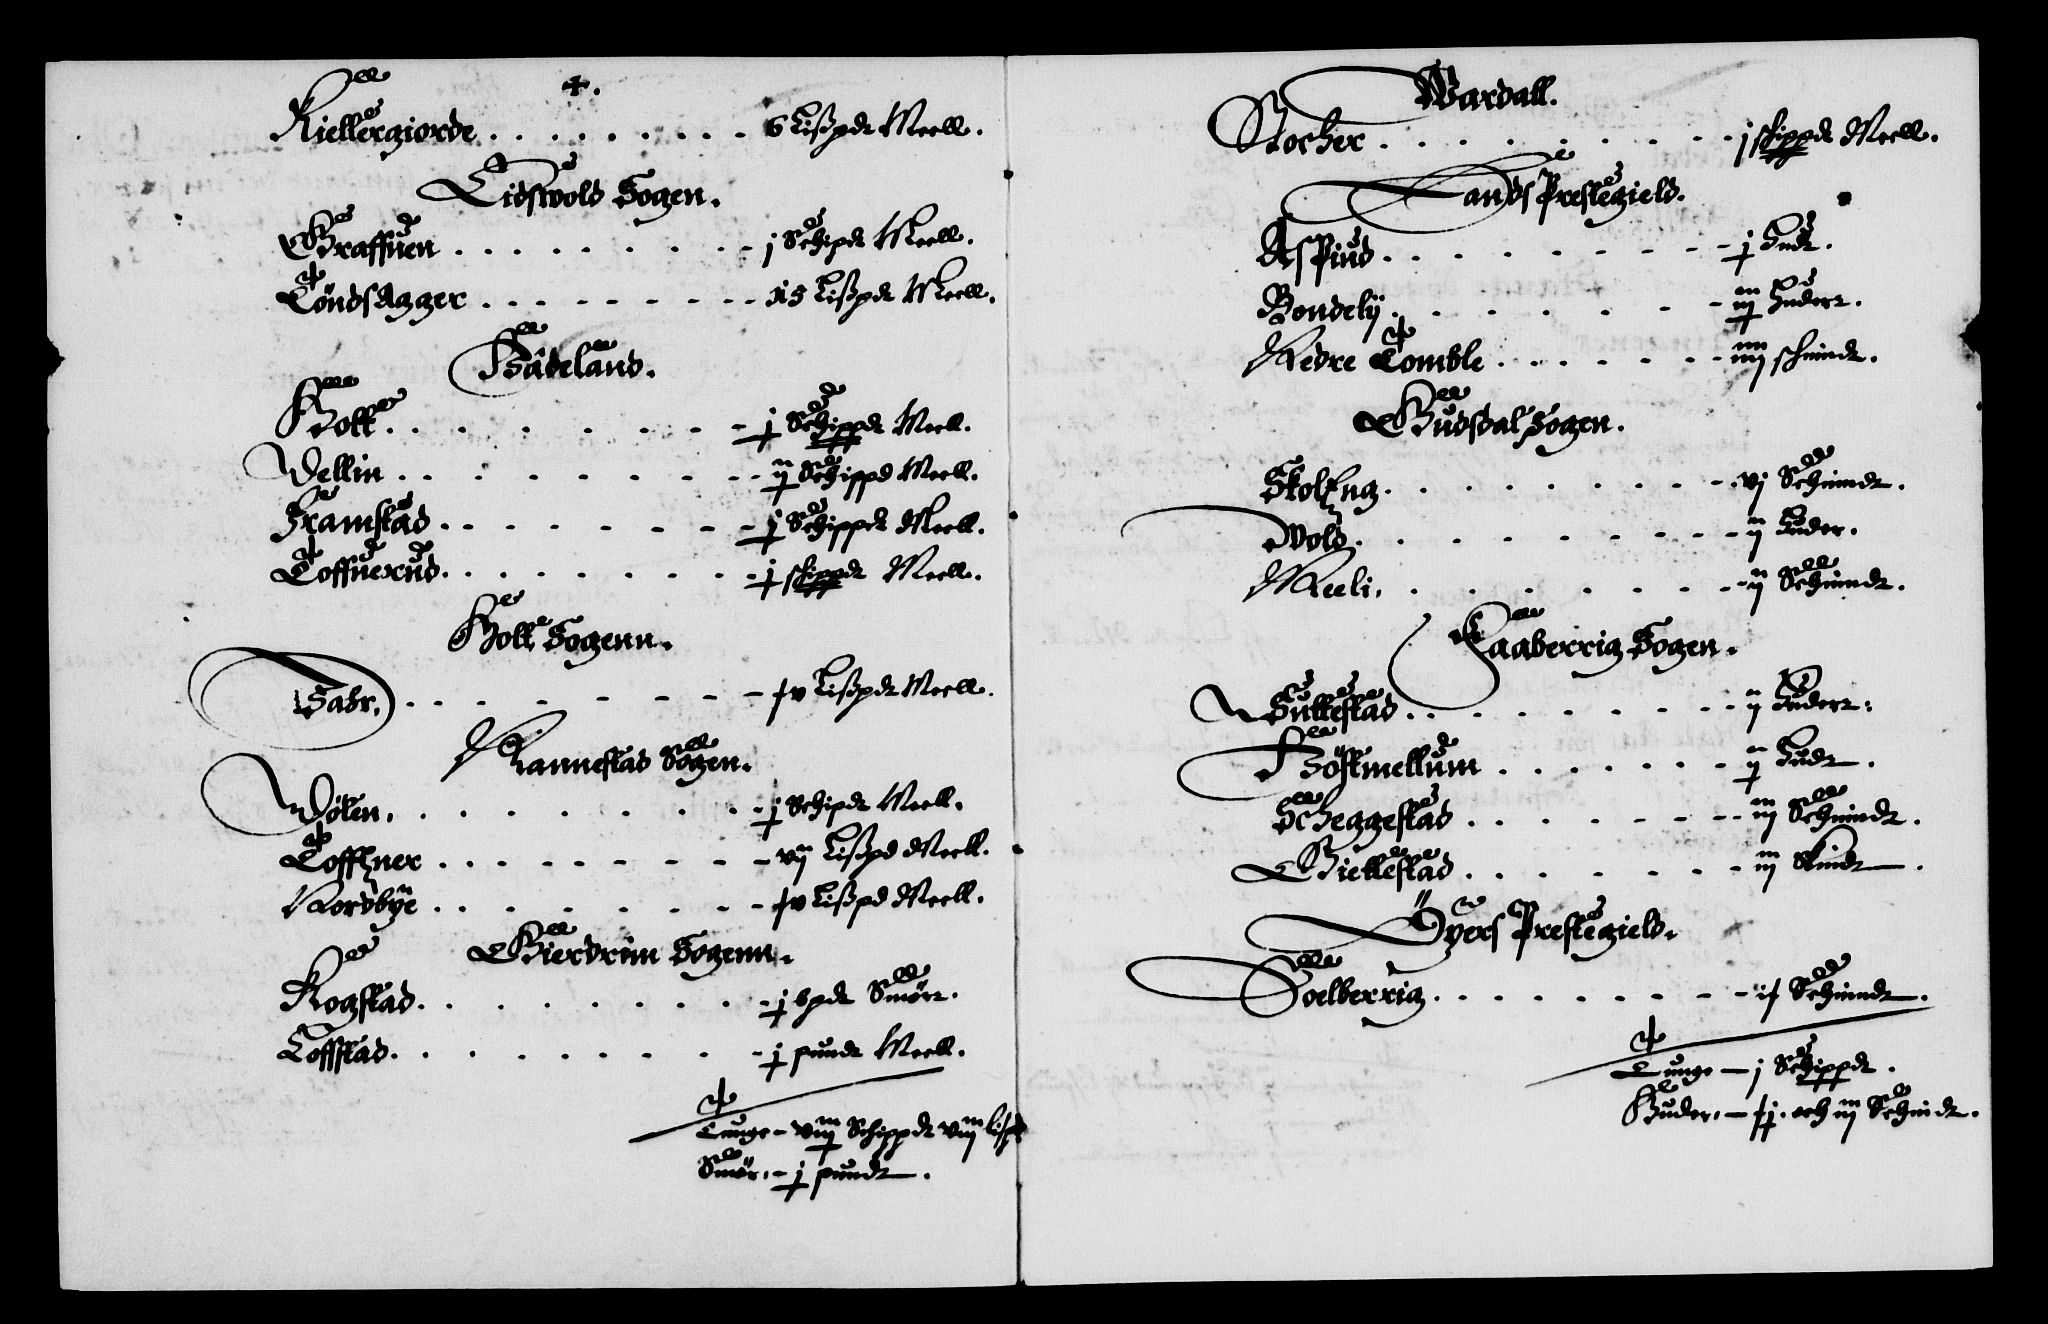 Kiellergiorde . . . . . . . . 6 Lißpdt Meell.
Eidswold Sogen.
Graffuen . . . . . . . . . j Schipdt Meell.
Tøndsagger . . . . . . . . 15 Lißpdt Meell.
Hadeland.
Holl . . . . . . . . j Schippdt Meell.
Vellin . . . . . . . . ij Schippd Meell.
Framstad . . . . . . . . j Schippdt Meell.
Toffuerud . . . . . . . . j skippdt Meell.
Holl Sogenn.
. . . . . . . . Lißpdt Meell.
Nannestad Sogen.
Vølen . . . . . . . . j Schipdt Meell.
Toffzner . . . . . . . . vij Lißpd Meell.
Nordbye . . . . . . . . Lißpd Meell.
Gierdrim Sogenn.
Rogstad . . . . . . . . j bpdt Smørr.
Toffstad . . . . . . . . j pundt Meell.
Tunge - viij Schippdt viij Lispd
Smør - j pundt.
Wardall.
Stocher . . . . . . . . j skippdt Meell.
Lands Prestegield.
Aspiud . . . . . . . . j Hudt.
Bondelij . . . . . . . . iij Huderr.
Nedre Tomble . . . . . . . iiij schindt.
Gudsdal Sogen.
Skolzng . . . . . . . . vj Schindt.
Wold . . . . . . . . ij Huder.
Meeli . . . . . . . . ij Schindt.
Faaberrig Sogen.
Sullestad . . . . . . . . ij Huderr.
Høstmellum . . . . . . . ij Hudt.
Scheggestad . . . . . . . iij Schindt.
Giellestad . . . . . . . iij Skindt.
Öyers Prestegield.
Soelberrig . . . . . . . . Schindt.
Tunge - j Schippdt.
Huder. - och iij Schindt.